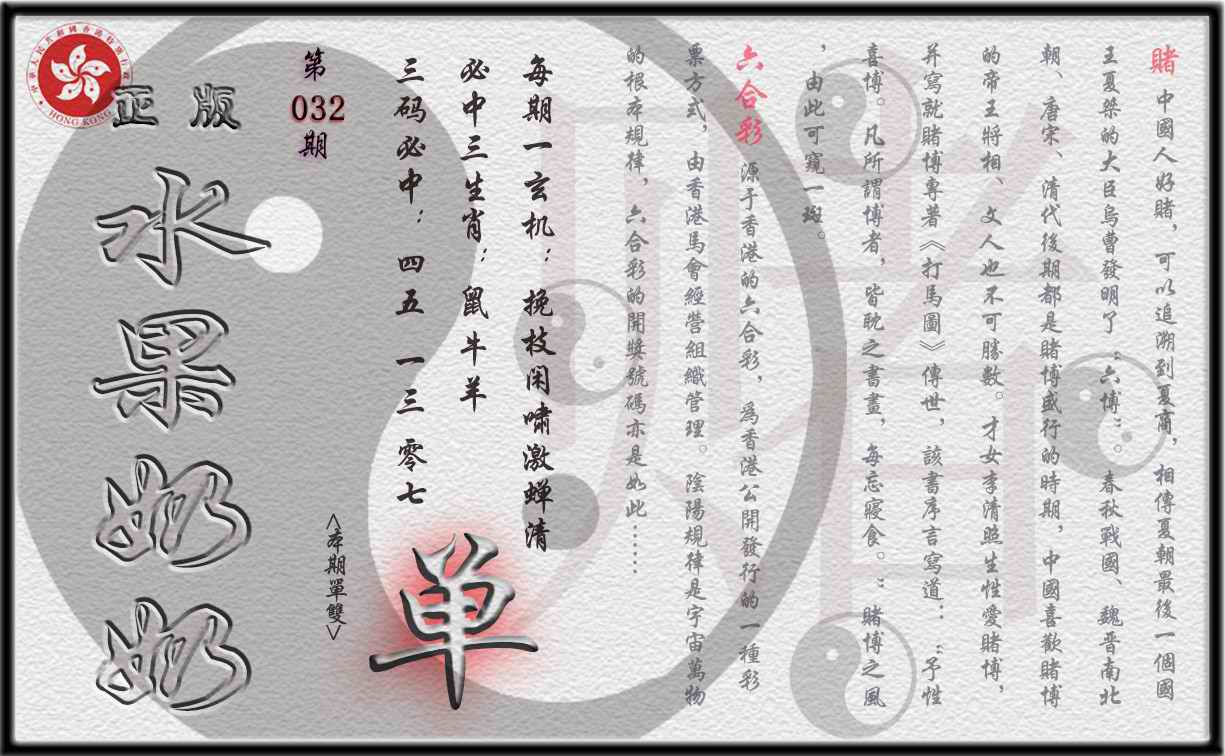 賭 中國人好賭，可以追溯到夏商，相傳夏朝最後一個國
王夏桀的大臣烏曹發明了“六博”。春秋戰國、魏晋南北
朝、唐宋、清代後期都是賭博盛行的時期，中國喜歡賭博
的帝王將相、文人也不可勝數。才女李清照生性愛賭博，
并寫就賭博專著《打馬圖》傳世，該書序言寫道：：“予性
喜博。凡所謂博者，皆耽之晝夜，每忘寢食。”賭博之風
，由此可窺一斑。
六合彩 源于香港的六合彩，爲香港公開發行的一種彩
票方式，由香港馬會經營組織管理。陰陽規律是宇宙萬物
的根本規律，六合彩的開獎號碼亦是如此……
每期一玄机：挽枝闲啸激蝉清
必中三生肖：鼠牛羊
三码必中：四五 一三 零七
单
<本期單雙>
第
032
期
正版
水果奶奶
中華人民共和國香港特別行政區
HONG KONG